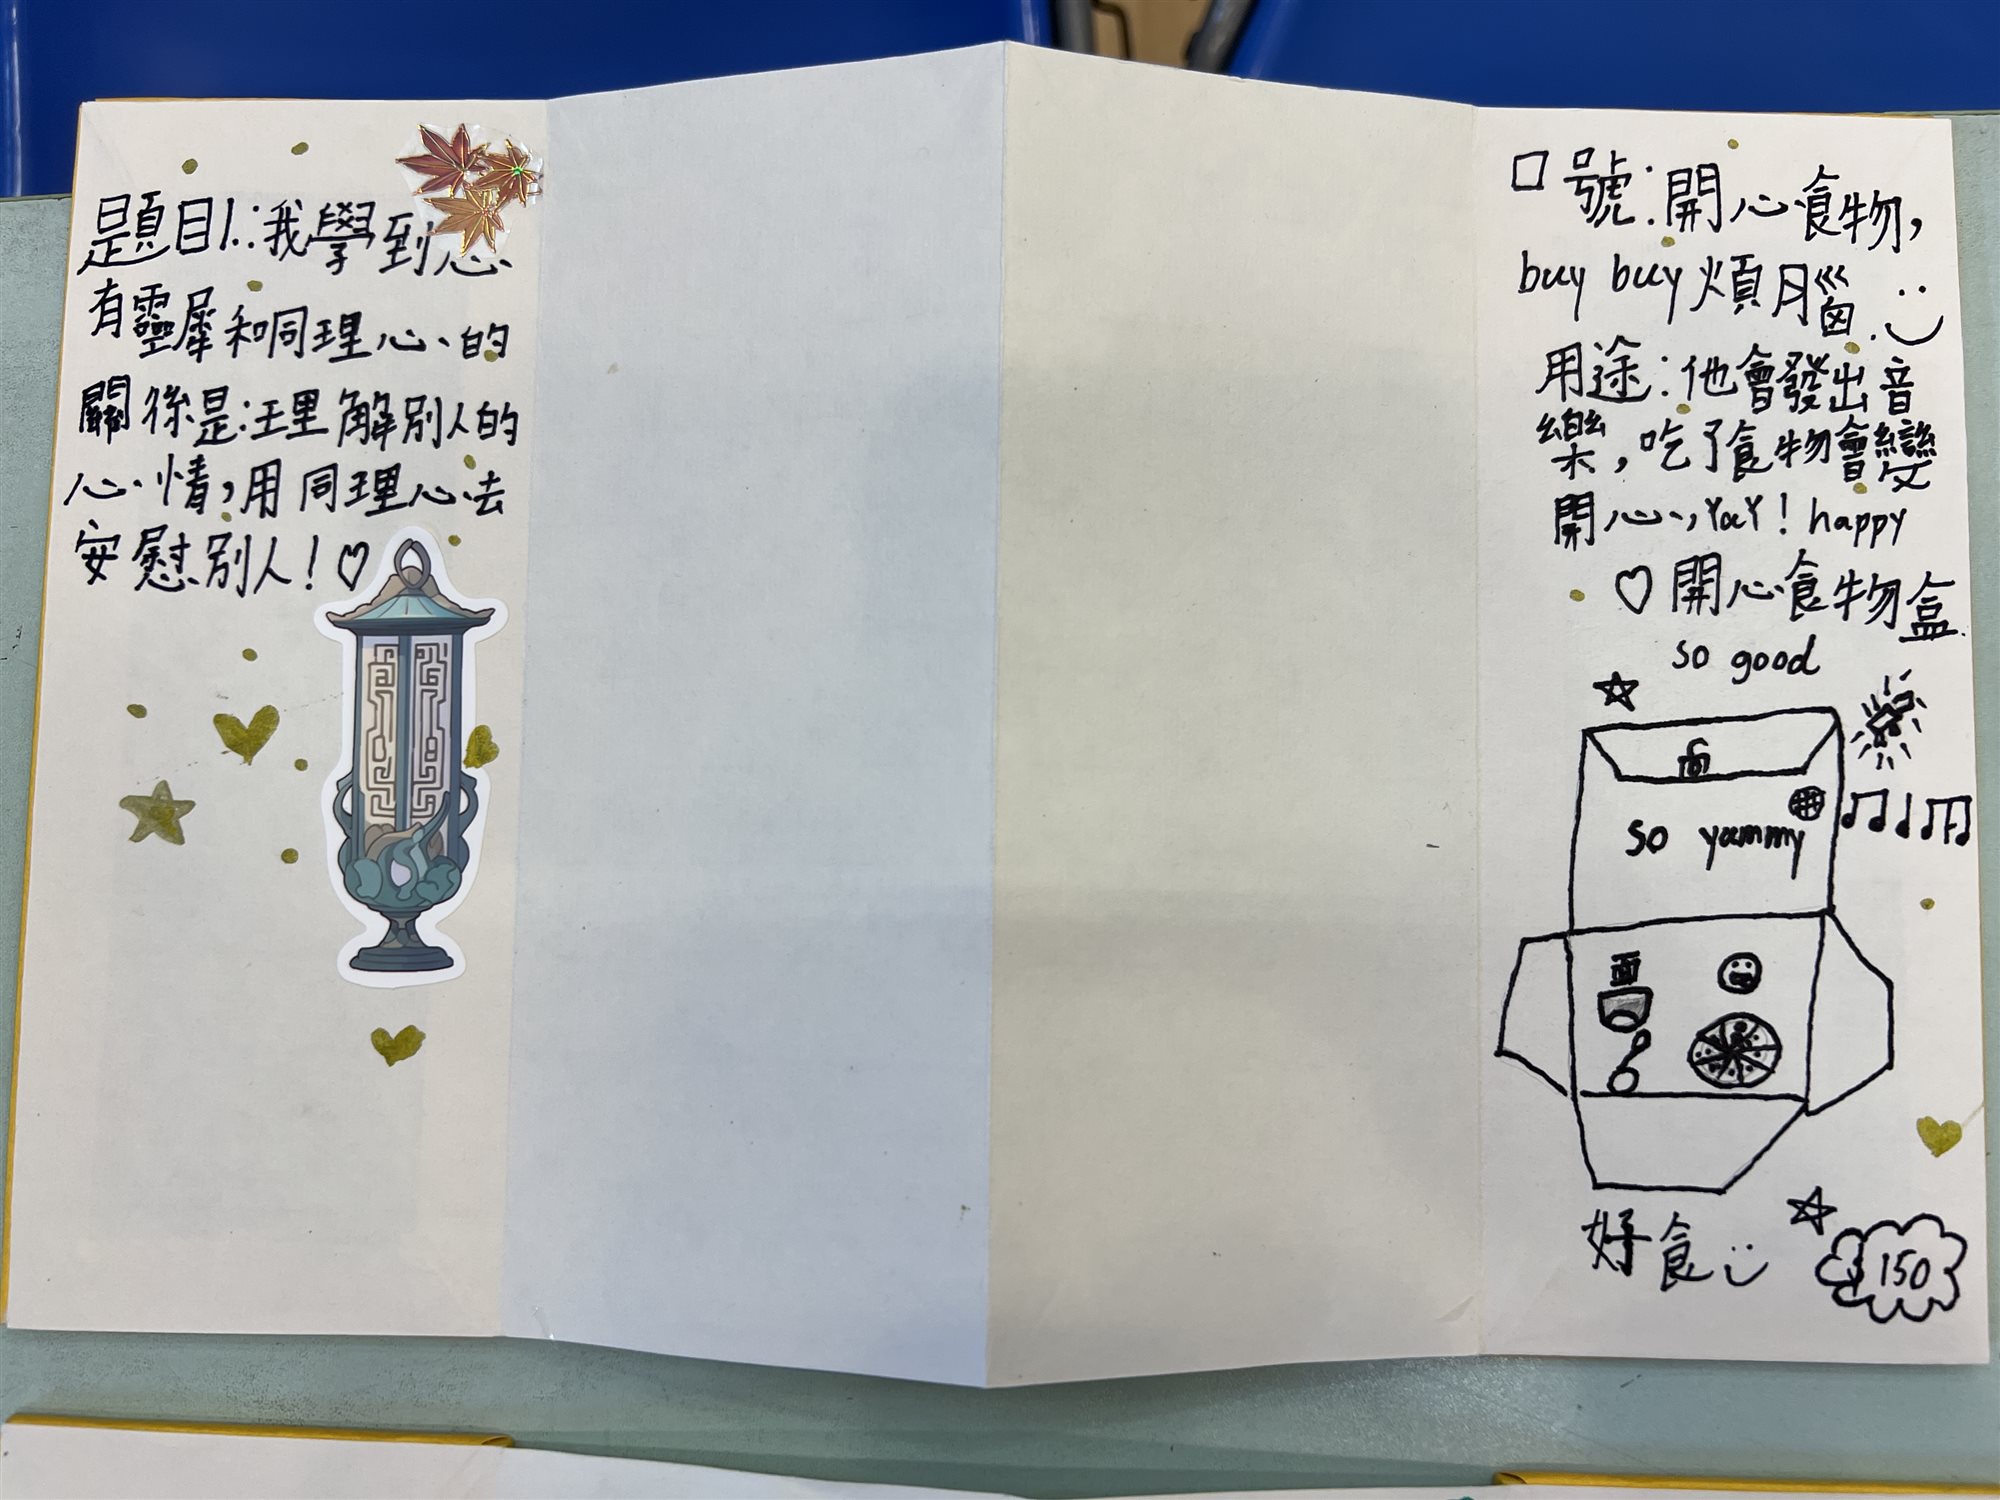 題目1.:我學到心
有靈犀和同理心的
關係是:理解別人的
心情,用同理心去
安慰別人!♡
口號:開心食物,
buy buy 煩腦.
用途:他會發出音
樂,吃了食物會變
開心,YaY! happy
♡開心食物盒.
so good
so yammy
面
好食
150